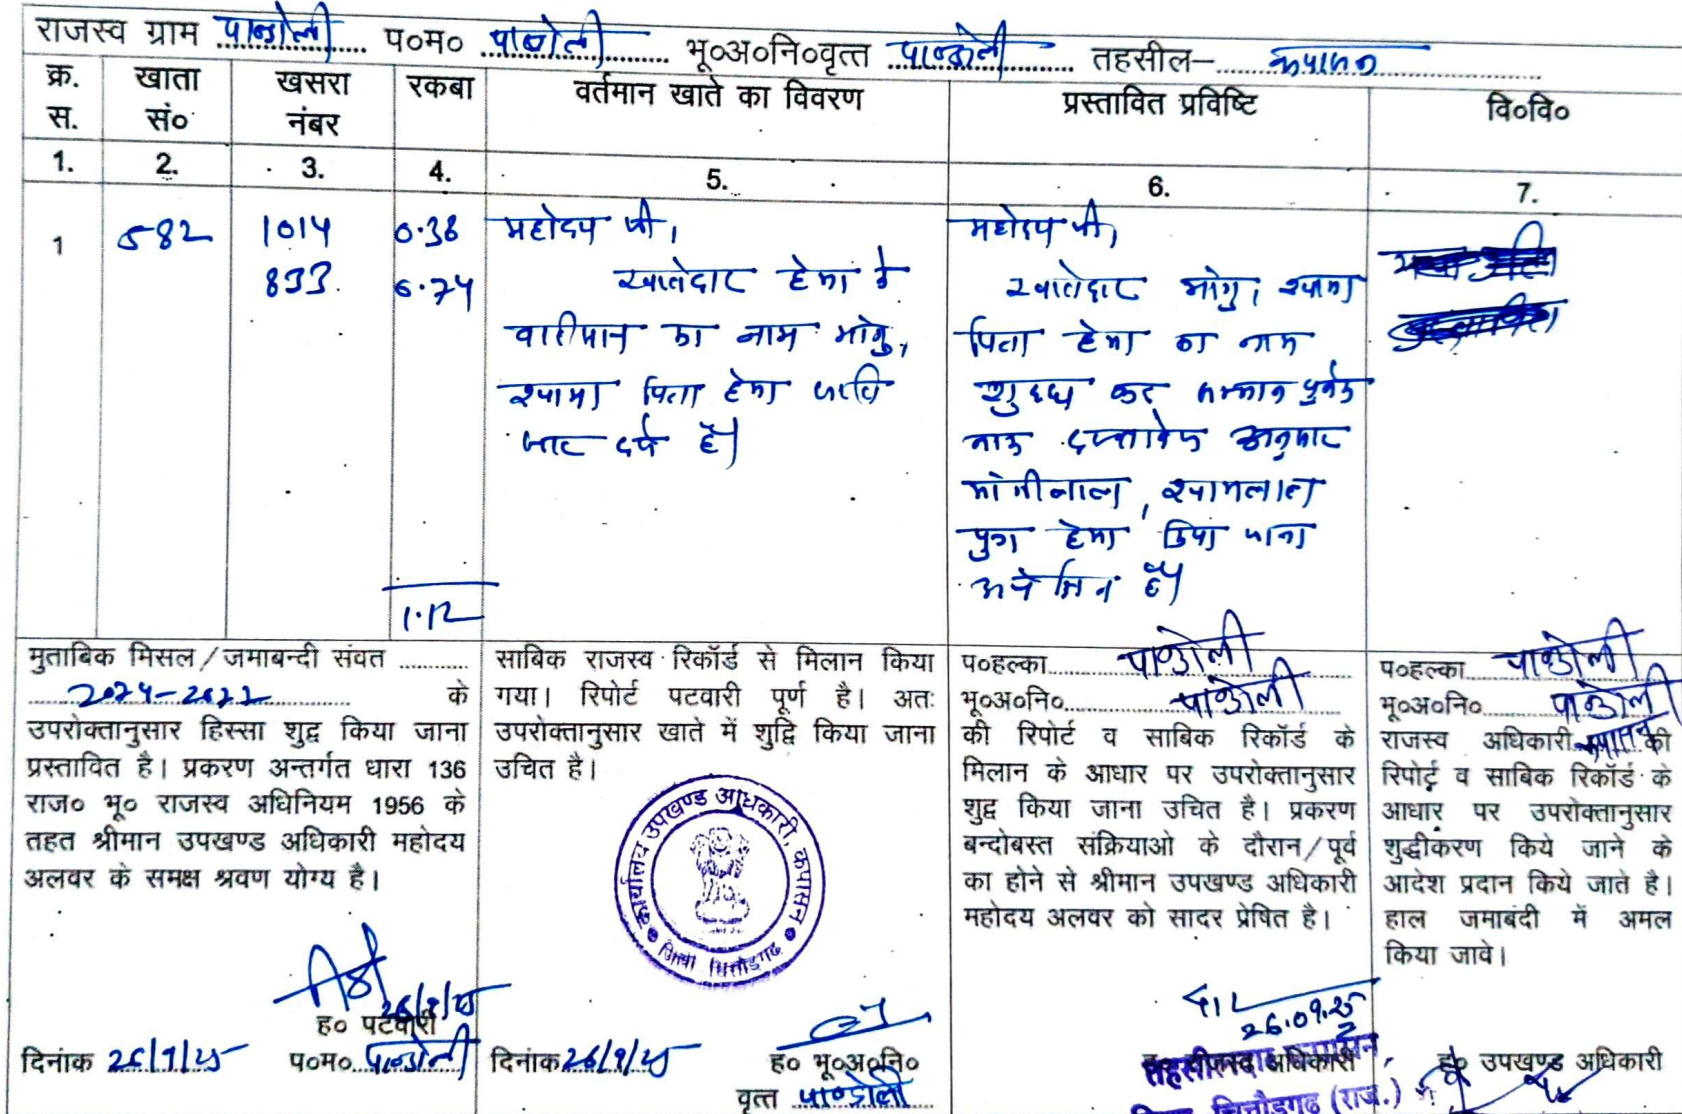 राजस्व ग्राम पाण्डोली प०म० पाण्डोली भू०अ०नि०वृत्त पाण्डोली तहसील- कपासन
क्र. स. खाता सं० खसरा नंबर रकबा वर्तमान खाते का विवरण प्रस्तावित प्रविष्टि वि०वि०
1. 2. 3. 4. 5. 6. 7.
1 582 1014 0.38
833 0.74
1.12
महोदय जी,
खातेदार हेमा के
वारीसान का नाम मांगु,
श्यामा पिता हेमा जाति
जाट दर्ज है।
महोदय जी,
खातेदार मांगु, श्यामा
पिता हेमा का नाम
शुद्ध कर
दस्तावेज अनुसार
मांगीलाल, श्यामलाल
पुत्र हेमा किया जाना
अपेक्षित है।
मुताबिक मिसल/जमाबन्दी संवत
2074-2077 के
उपरोक्तानुसार हिस्सा शुद्व किया जाना
प्रस्तावित है। प्रकरण अन्तर्गत धारा 136
राज० भू० राजस्व अधिनियम 1956 के
तहत श्रीमान उपखण्ड अधिकारी महोदय
अलवर के समक्ष श्रवण योग्य है।
26/9/25
ह० पटवारी
दिनांक 26/9/25 प०म० पाण्डोली
साबिक राजस्व रिकॉर्ड से मिलान किया
गया। रिपोर्ट पटवारी पूर्ण है। अतः
उपरोक्तानुसार खाते में शुद्वि किया जाना
उचित है।
कार्यालय उपखण्ड अधिकारी, कपासन
जिला चित्तौडगढ
दिनांक 26/9/25 ह० भू०अ०नि०
वृत्त पाण्डोली
प०हल्का पाण्डोली
भू०अ०नि० पाण्डोली
की रिपोर्ट व साबिक रिकॉर्ड के
मिलान के आधार पर उपरोक्तानुसार
शुद्व किया जाना उचित है। प्रकरण
बन्दोबस्त संक्रियाओ के दौरान/पूर्व
का होने से श्रीमान उपखण्ड अधिकारी
महोदय अलवर को सादर प्रेषित है।
26.09.25
तहसीलदार कपासन
चित्तौडगढ (राज.)
प०हल्का पाण्डोली
भू०अ०नि० पाण्डोली
राजस्व अधिकारी कपासन की
रिपोर्ट व साबिक रिकॉर्ड के
आधार पर उपरोक्तानुसार
शुद्धीकरण किये जाने के
आदेश प्रदान किये जाते है।
हाल जमाबंदी में अमल
किया जावे।
ह० उपखण्ड अधिकारी